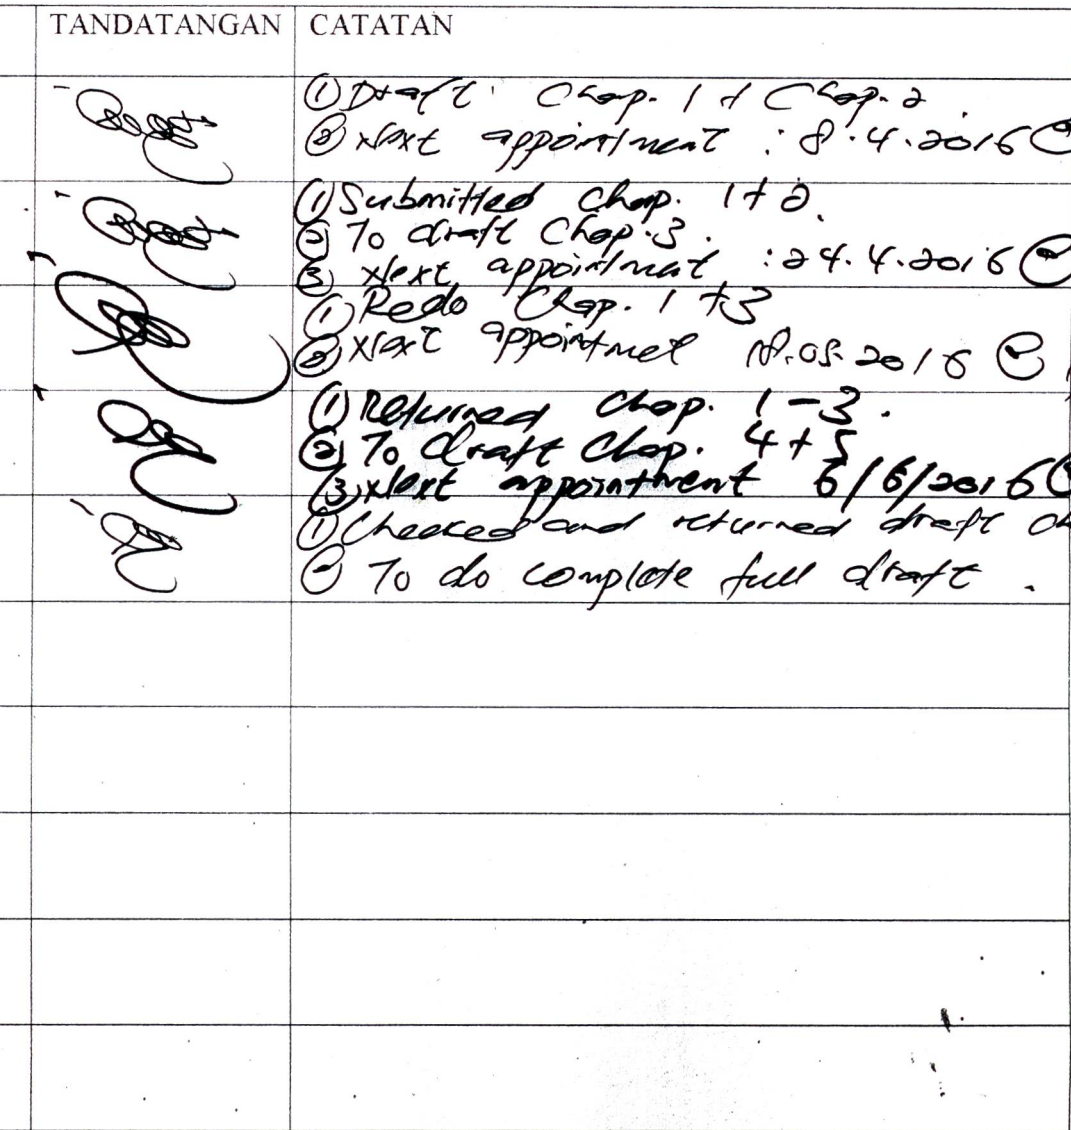 TANDATANGAN CATATAN
① Draft: Chap. 1 + Chap. 2.
② Next appointment : 8.4.2016
① Submitted Chap. 1 + 2.
② To draft Chap. 3.
③ Next appointment : 24.4.2016
① Redo Chap. 1 + 3
② Next appointmet .05.2016
① Returned Chap. 1 - 3.
② To draft Chap. 4 + 5
③ Next appointment 6/6/2016
① Checked and returned draft
② To do complete full draft.